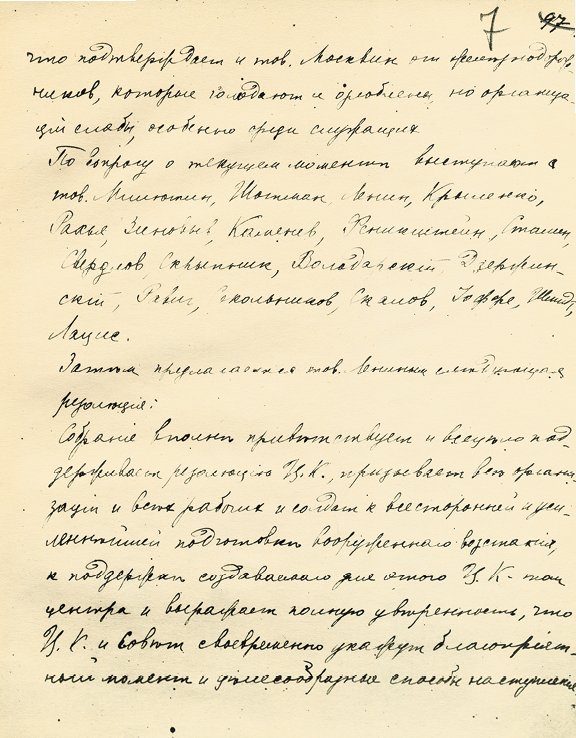 7 97
что подтверждает и тов. Москвин от железнодорож-
ников, которые голодают и озлоблены, но организа-
ція слаба, особенно среди служащих.
По вопросу о текущем моменте выступают
тов. Милютин, Шотман, Ленин, Крыленко,
Рахья, Зиновьев, Каменев, Фенигштейн, Сталин,
Свердлов, Скрыпник, Володарскій, Дзержин-
скій, Равич, Сокольников, Скалов, Іоффе, Шмидт,
Лацис.
Затѣм предлагается тов. Лениным слѣдующая
резолюція:
Собраніе вполнѣ привѣтствует и всецѣло под-
держивает резолюцію Ц.К., призывает всѣ органи-
заціи и всѣх рабочих и солдат к всесторонней и уси-
леннѣйшей подготовкѣ вооруженнаго возстанія,
к поддержкѣ создаваемаго для этого Ц.К-том
центра и выражает полную увѣренность, что
Ц.К. и Совѣт своевременно укажут благопріят-
ный момент и цѣлесообразные способы наступленія